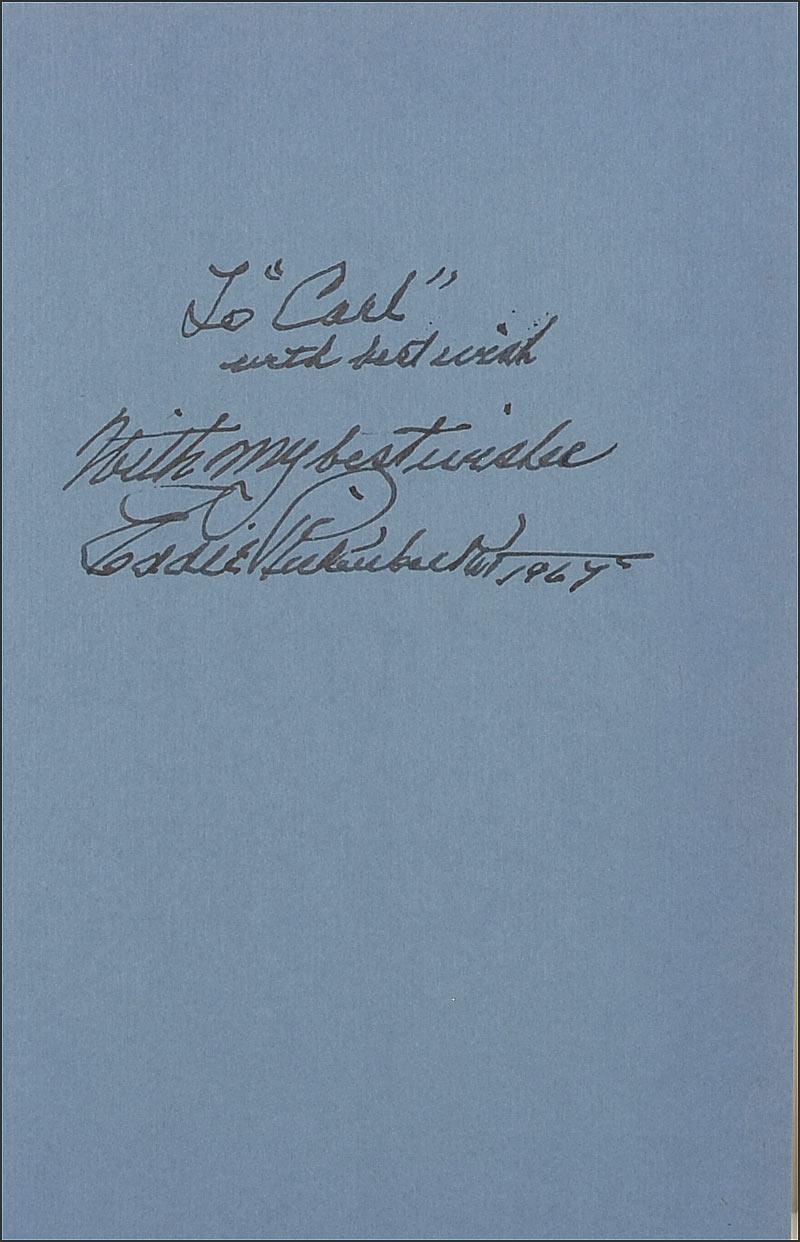 To "Carl"
with best wish
With my best wishes
Eddie Rickenbacker 1967